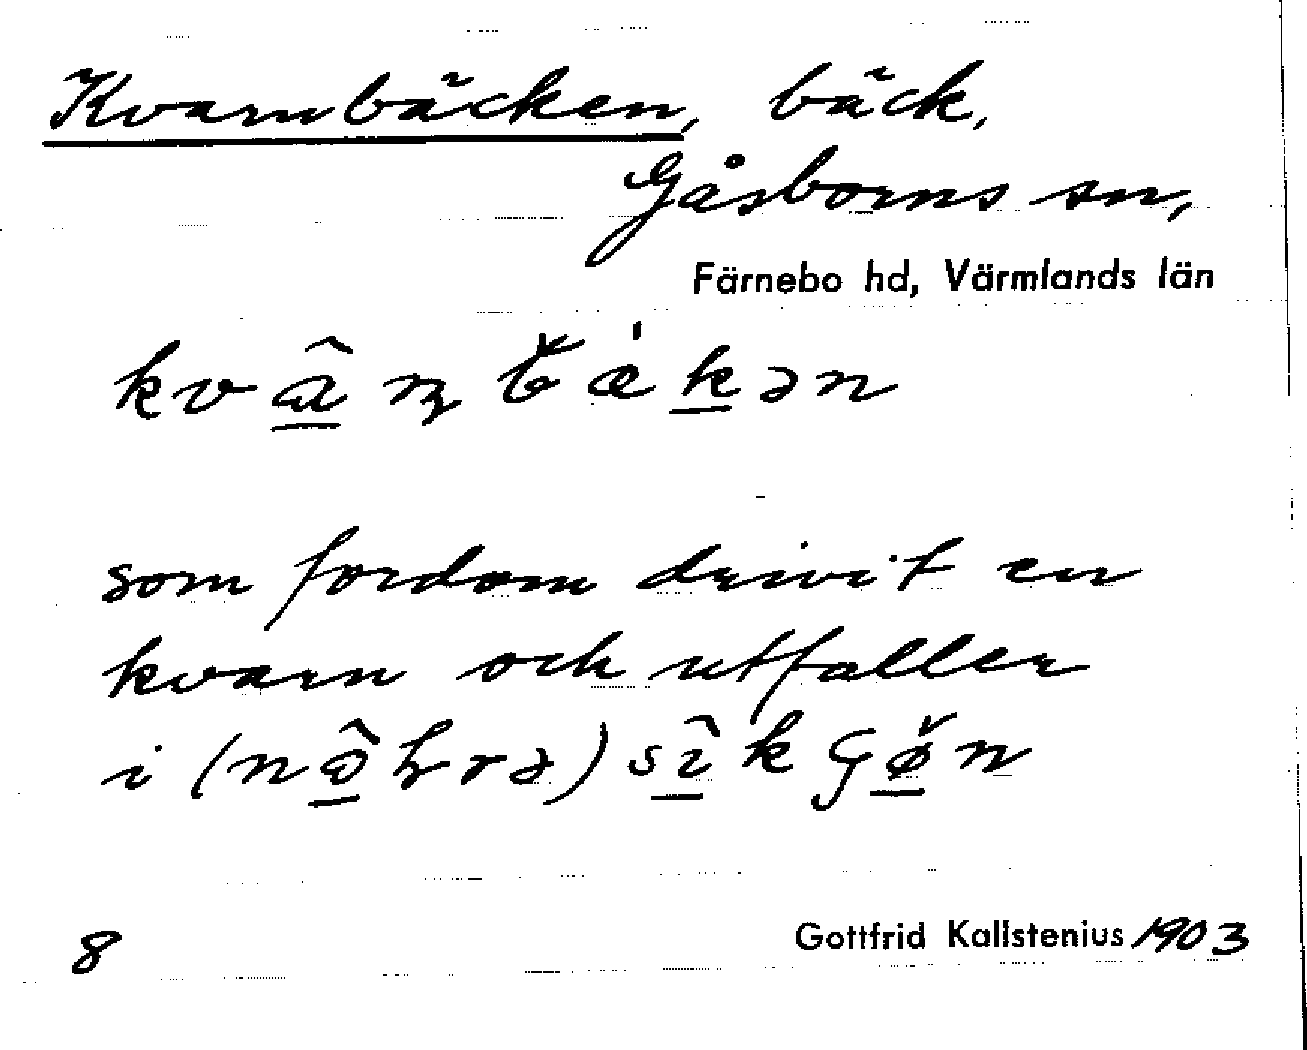 Kvarnbäcken, bäck,
Gåsborns sn,
Färnebo hd, Värmlands län
kvâɳbǽkən
som fordom drivit en
kvarn och utfaller
i (
8
Gottfrid Kallstenius 1903